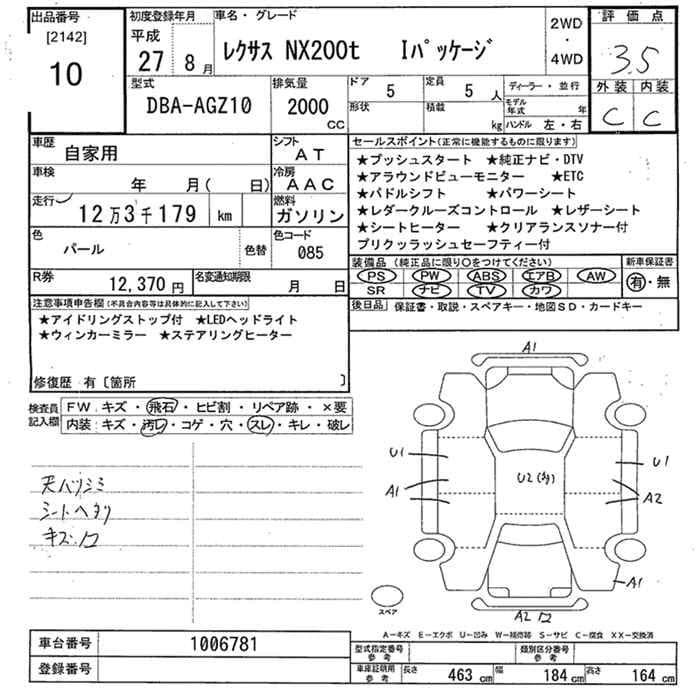 出品番号
[2142]
10
初度登録年月
平成
27年 8月
車名・グレード
レクサス NX200t Iパッケージ
2WD
・
4WD
評価点
3.5
外装 内装
C C
型式
DBA-AGZ10
排気量
2000
CC
ドア
5
定員
5 人
形状
積載
kg
ディーラー・並行
モデル年式 年
ハンドル 左・右
車歴
自家用
シフト
AT
車検
年 月( 日)
冷房
AAC
走行
12万3千179 km
燃料
ガソリン
色
パール
色替
色コード
085
R券
12,370円
名変通知期限
月 日
セールスポイント(正常に機能するものに限ります)
★プッシュスタート ★純正ナビ・DTV
★アラウンドビューモニター ★ETC
★パドルシフト ★パワーシート
★レダークルーズコントロール ★レザーシート
★シートヒーター ★クリアランスソナー付
プリクラッラッシュセーフティー付
装備品 (純正品に限り○をつけてください)
PS PW ABS エアB AW
SR ナビ TV カワ
新車保証書
有・無
後日品 保証書・取説・スペアキー・地図SD・カードキー
注意事項申告欄(不具合内容等は具体的に記入して下さい)
★アイドリングストップ付 ★LEDヘッドライト
★ウィンカーミラー ★ステアリングヒーター
修復歴 有〔箇所 〕
検査員記入欄
FW.キズ・飛石・ヒビ割・リペア跡・×要
内装:キズ・汚レ・コゲ・穴・スレ・キレ・破レ
天ハリシミ
シートヘタリ
キズ・
A1
U1
A1
U2
U1
A2
A1
A2
スペア
A−キズ E−エクボ U−凹み W−補修跡 S−サビ C−腐食 XX−交換済
車台番号
1006781
登録番号
型式指定番号
参考
類別区分番号
参考
車庫証明用
参考
長さ 463 cm 幅 184 cm 高さ 164 cm